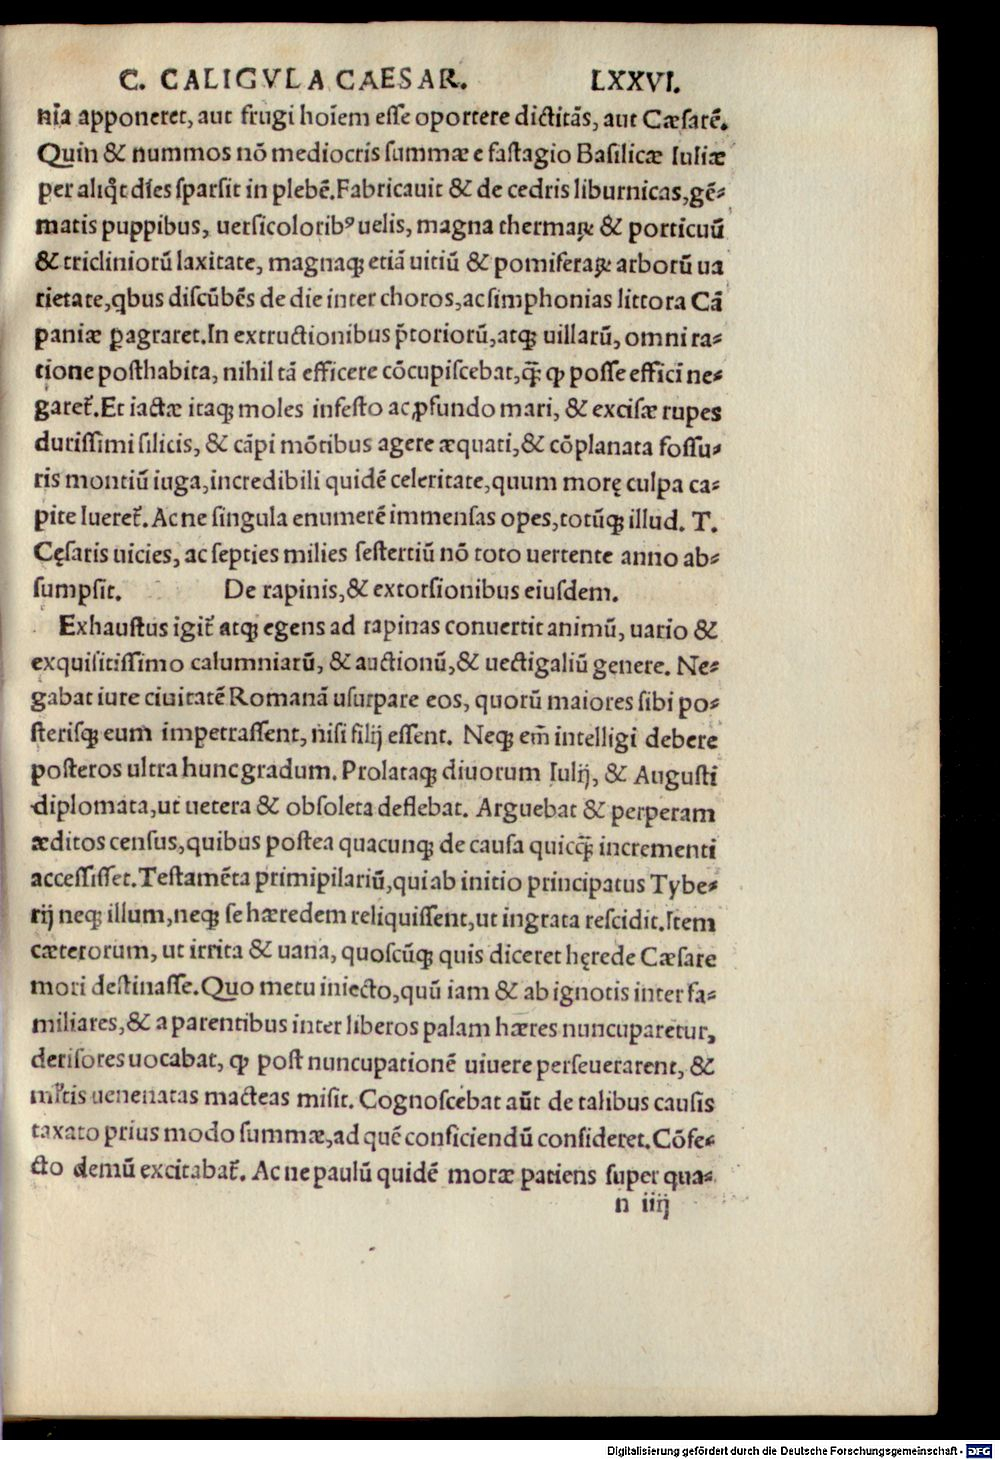 C. CALIGVLA CAESAR. LXXVI.
nīa apponeret, aut frugi hoīem esse oportere dictitās, aut Cæsarē.
Quin & nummos nō mediocris summæ e fastagio Basilicæ Iuliæ
per aliqt dīes sparsit in plebē. Fabricauit & de cedris liburnicas, gē-
matis puppibus, uersicoloribꝰ uelis, magna thermaꝝ & porticuū
& tricliniorū laxitate, magnaqꝫ etiā uitiū & pomiferaꝝ arborū ua
rietate, qbus discūbēs de die inter choros, ac simphonias littora Cā
paniæ ꝑagraret. In extructionibus p̄toriorū, atqꝫ uillarū, omni ra-
tione posthabita, nihil tā efficere cōcupiscebat, q̄ꝫ ꝙ posse effici ne-
garet̃. Et iactæ itaqꝫ moles infesto ac ꝓfundo mari, & excisæ rupes
durissimi silicis, & cāpi mōtibus agere æquati, & cōplanata fossu-
ris montiū iuga, incredibili quidē celeritate, quum morę culpa ca-
pite lueret̃. Ac ne singula enumerē immensas opes, totūqꝫ illud. T.
Cęsaris uicies, ac septies milies sestertiū nō toto uertente anno ab-
sumpsit. De rapinis, & extorsionibus eiusdem.
Exhaustus igit̃ atqꝫ egens ad rapinas conuertit animū, uario &
exquisitissimo calumniarū, & auctionū, & uectigaliū genere. Ne-
gabat iure ciuitatē Romanā usurpare eos, quorū maiores sibi po-
sterisqꝫ eum impetrassent, nisi filij essent. Neqꝫ em̄ intelligi debere
posteros ultra hunc gradum. Prolataqꝫ diuorum Iulij, & Augusti
diplomata, ut uetera & obsoleta deflebat. Arguebat & perperam
æditos census, quibus postea quacunqꝫ de causa quicq̄ꝫ incrementi
accessisset. Testamēta primipilariū, qui ab initio principatus Tybe-
rij neqꝫ illum, neqꝫ se hæredem reliquissent, ut ingrata rescidit. Item
cæterorum, ut irrita & uana, quoscūqꝫ quis diceret hęrede Cæsare
mori destinasse. Quo metu iniecto, quū iam & ab ignotis inter fa-
miliares, & a parentibus inter liberos palam hæres nuncuparetur,
derisores uocabat, ꝙ post nuncupationē uiuere perseuerarent, &
ml̃tis uenenatas macteas misit. Cognoscebat aūt de talibus causis
taxato prius modo summæ, ad quē conficiendū consideret. Cōfe-
cto demū excitabat̃. Ac ne paulū quidē moræ patiens super qua-
n iiij
Digitalisierung gefördert durch die Deutsche Forschungsgemeinschaft - DFG